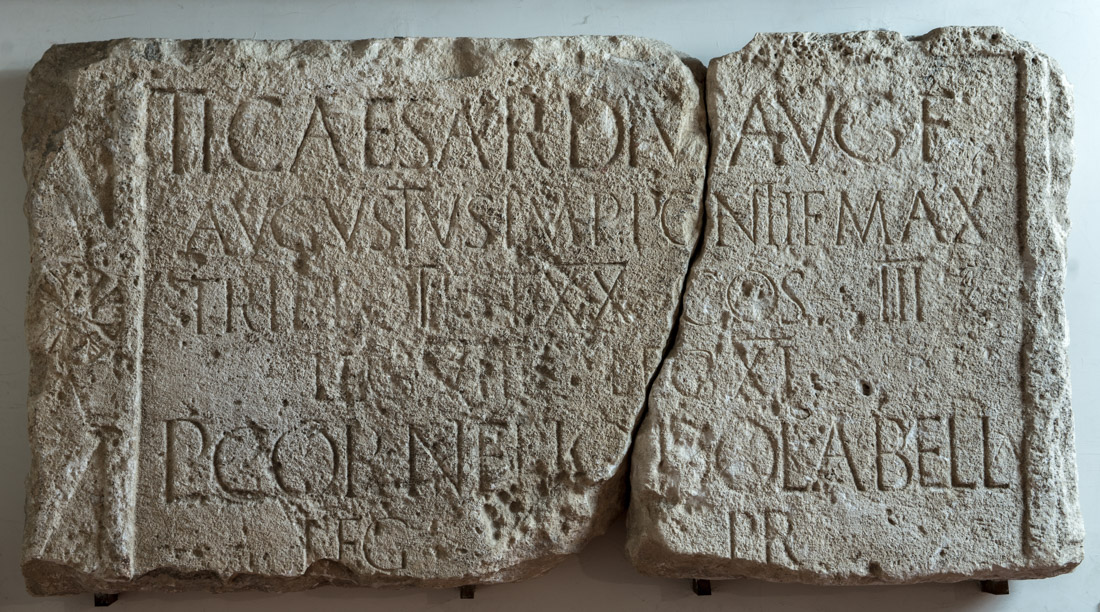 TI CAESAR DIVI AVG F
AVGVSTVS IMP PONTIF MAX
TRIB POTEST XX COS III
LEG VII LEG XI
P CORNELIO DOLABELLA
LEG PR